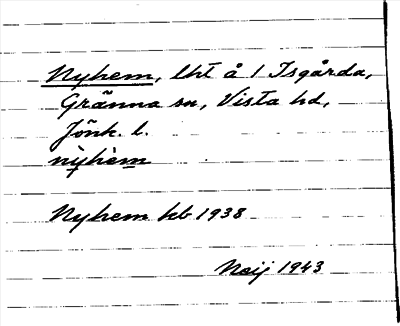 Nyhem, lht å 1 Isgårda,
Gränna sn, Vista hd,
Jönk. l.
nỳhèm
Nyhem kb 1938
Noij 1943